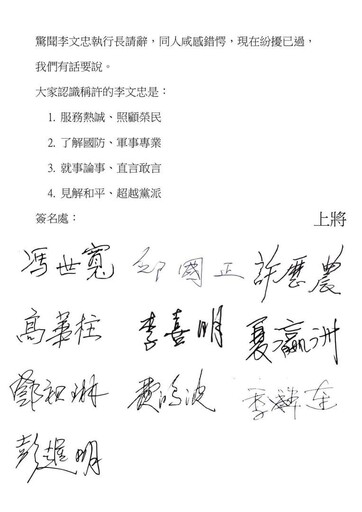 驚聞李文忠執行長請辭，同人咸感錯愕，現在紛擾已過，
我們有話要說。
大家認識稱許的李文忠是：
1. 服務熱誠、照顧榮民
2. 了解國防、軍事專業
3. 就事論事、直言敢言
4. 見解和平、超越黨派
簽名處：
上將
馮世寬 邱國正 許歷農
高華柱 李喜明 夏瀛洲
鄧祖琳 費鴻波 季麟連
彭進明